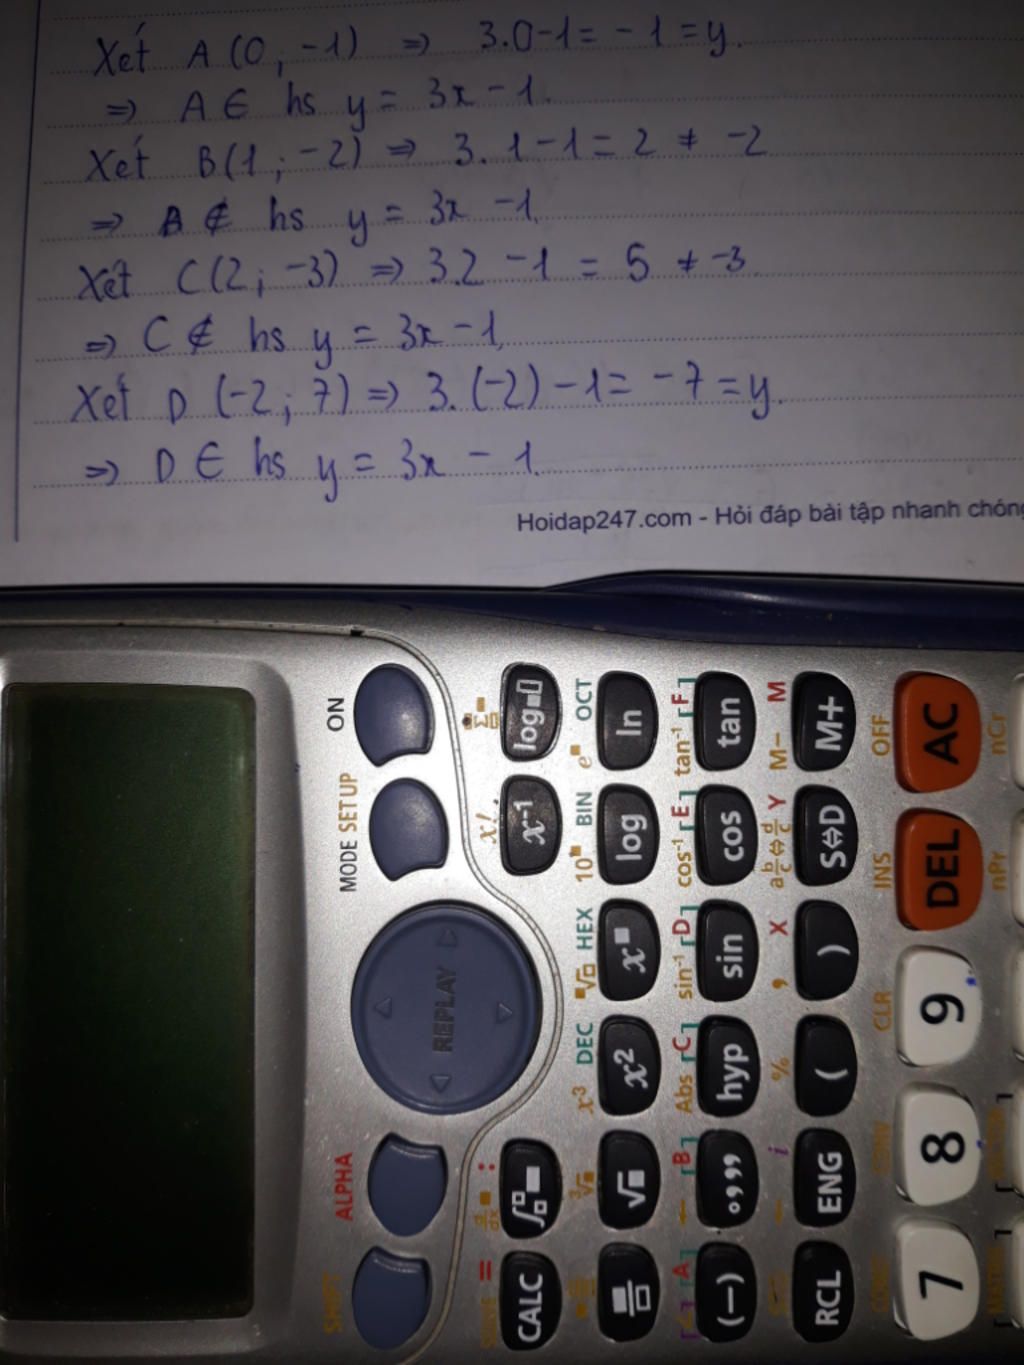 Xét A (0 ; -1) => 3.0-1 = -1 = y.
=> A ∈ hs y = 3x - 1.
Xét B(1 ; -2) => 3.1-1 = 2 ≠ -2
=> B ∉ hs y = 3x - 1.
Xét C(2 ; -3) => 3.2 - 1 = 5 ≠ -3.
=> C ∉ hs y = 3x - 1.
Xét D (-2 ; 7) => 3.(-2) - 1 = -7 = y.
=> D ∈ hs y = 3x - 1.
Hoidap247.com - Hỏi đáp bài tập nhanh chóng
SHIFT ALPHA MODE SETUP ON
REPLAY
SOLVE = d/dx : x! Σ
CALC ∫ x⁻¹ log
∛ x³ DEC √ HEX 10 BIN e OCT
√ x² x log ln
[A] [B] Abs [C] sin⁻¹ [D] cos⁻¹ [E] tan⁻¹ [F]
(−) °,,, hyp sin cos tan
← i % , X a b/c⇔d/c Y M− M
RCL ENG ( ) S⇔D M+
CONST CONV CLR INS OFF
7 8 9 DEL AC
[MATRIX] [VECTOR] nPr nCr